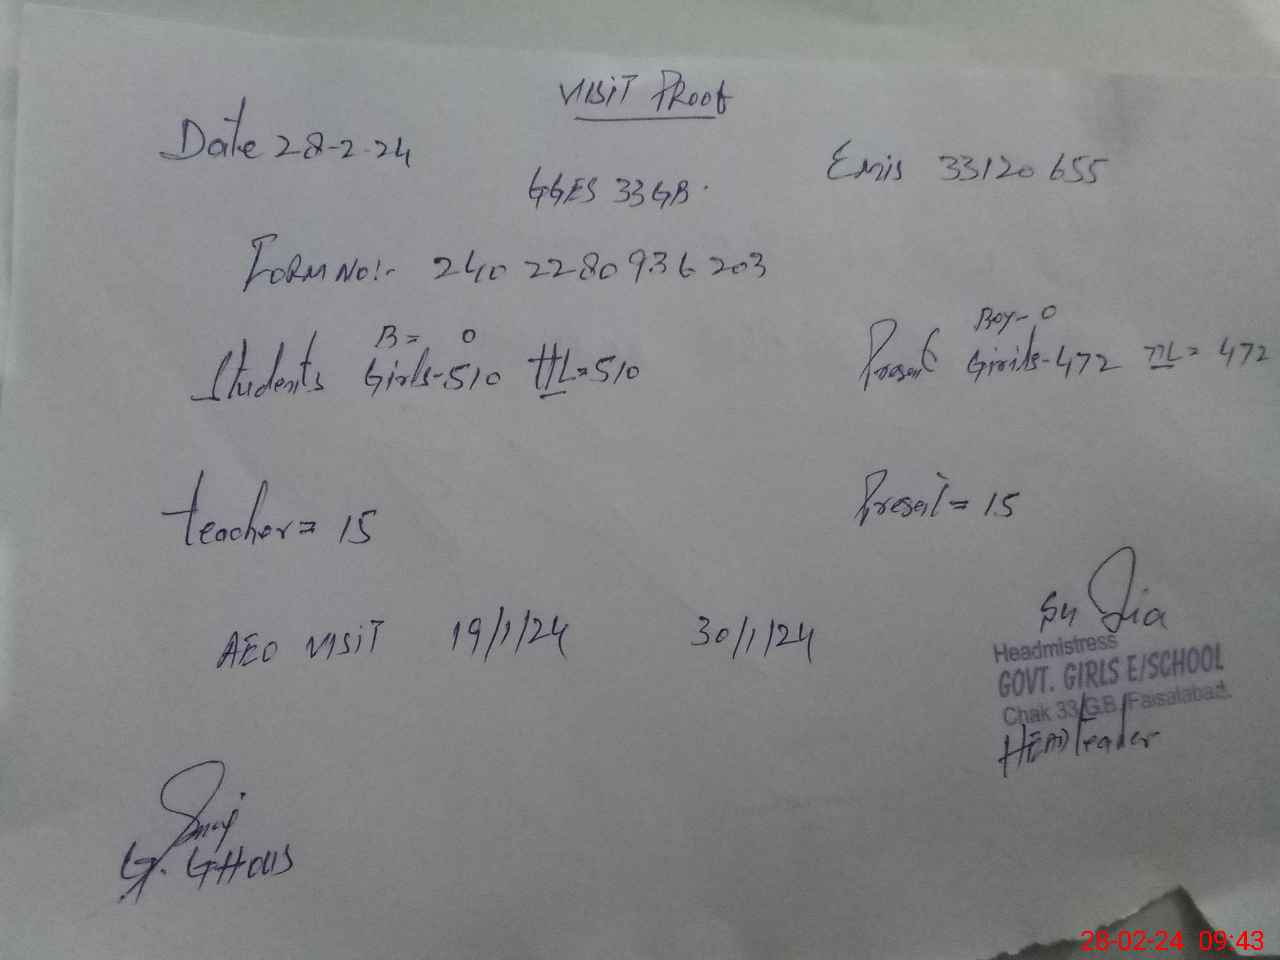 VISIT PROOF
Date 28-2-24
Emis 33120655
GGES 33GB.
FORM NO:- 2402280936203
B= 0
Students Girls-510 TTL=510
Boy- 0
Present Girls-472 TTL= 472
teacher= 15
Present= 15
AEO VISIT 19/1/24 30/1/24
Headmistress
GOVT. GIRLS E/SCHOOL
Chak 33/G.B. Faisalabad.
HEAD teacher
G. GHOUS
28-02-24 09:43